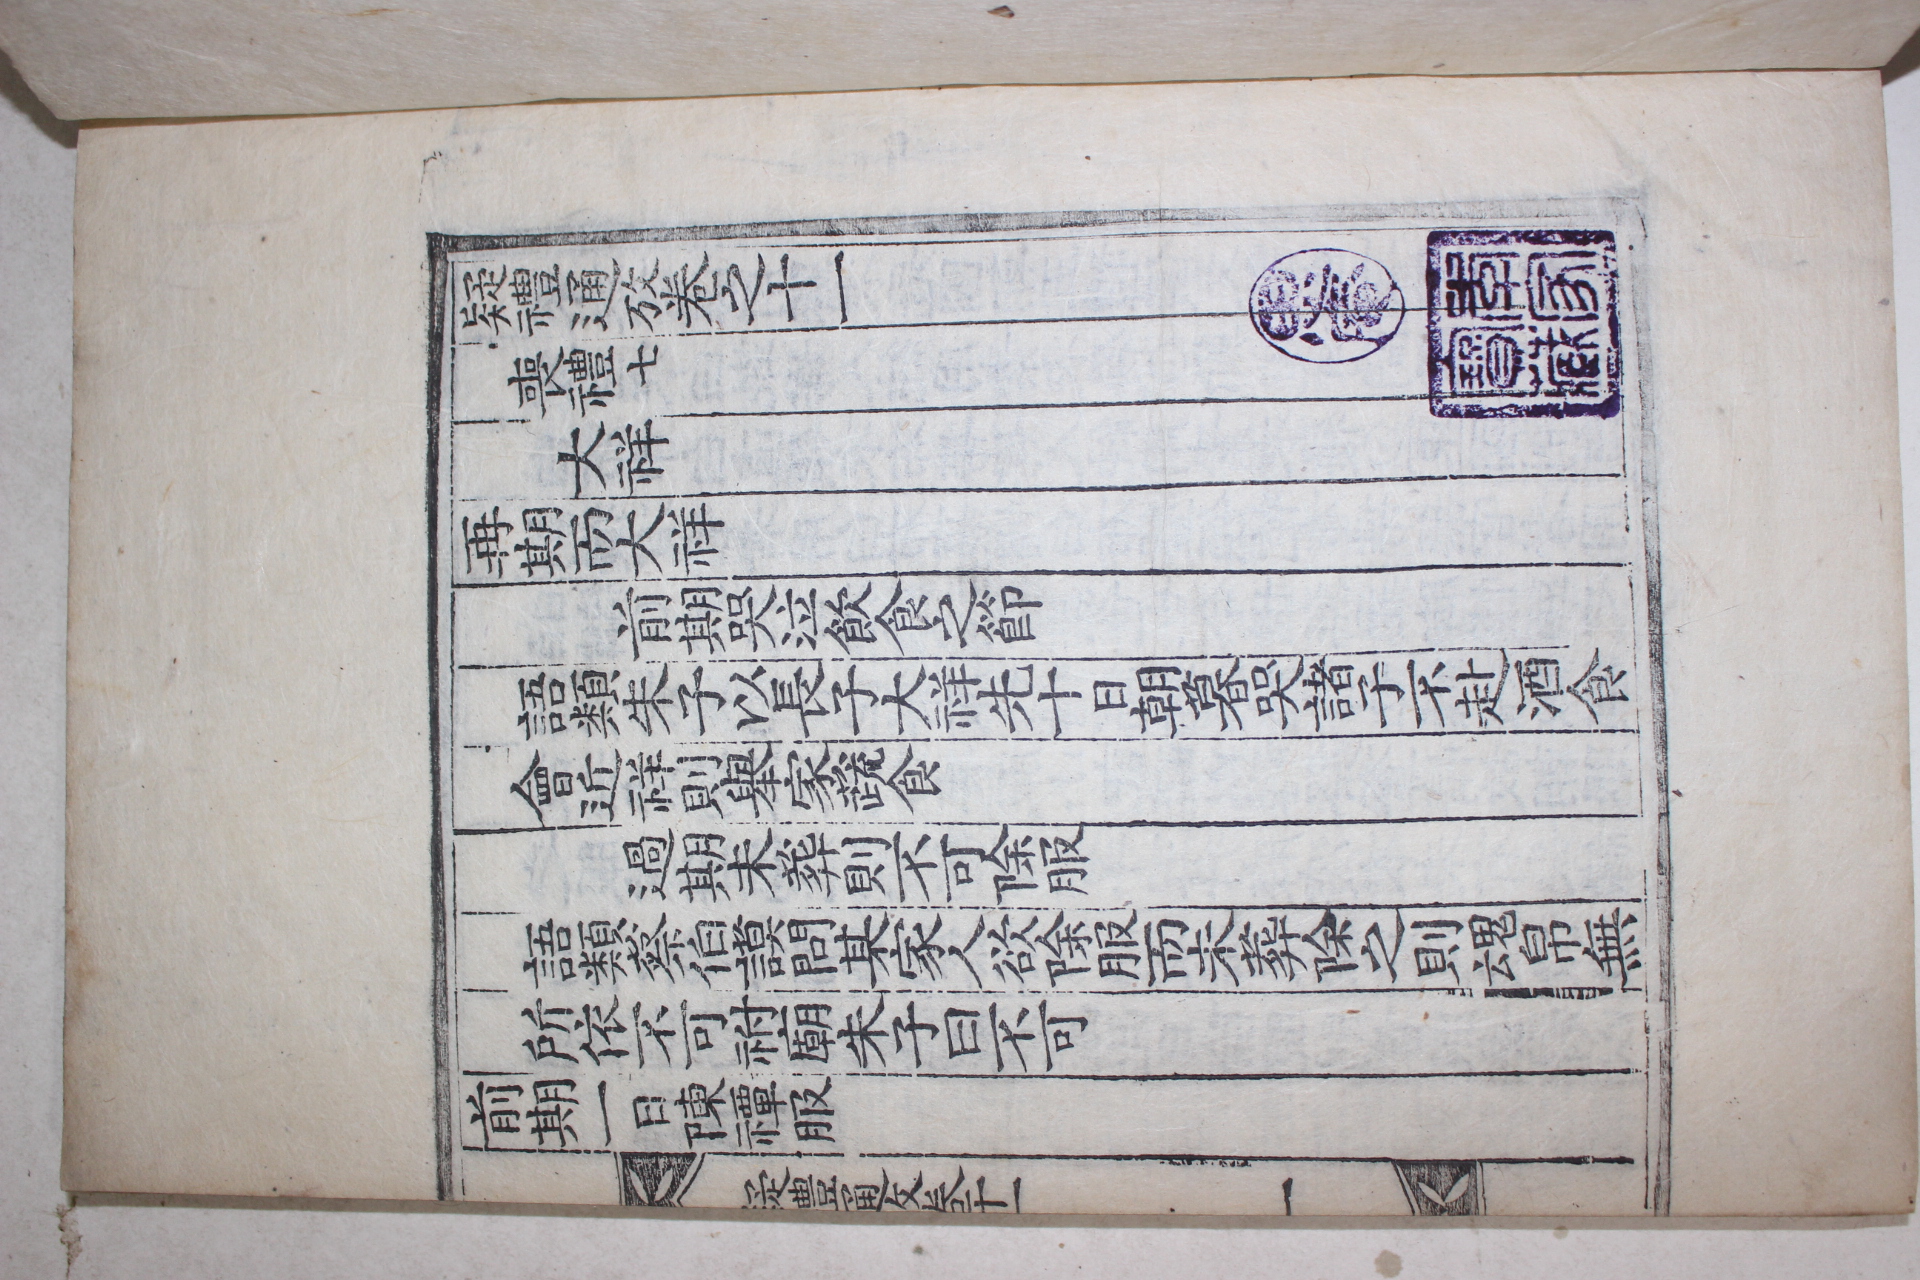 疑禮通攷卷之十一
喪禮七
大祥
再期而大祥
前期哭泣飮食之節
語類朱子以長子大祥先十日朝暮哭諸子不赴酒食
會近祥則擧家蔬食
過期未葬則不可除服
語類蔡伯謨問某家人欲除服而未葬除之則魂帛無
所依不可祔廟朱子曰不可
前期一日陳禫服
疑禮通攷卷十一 一